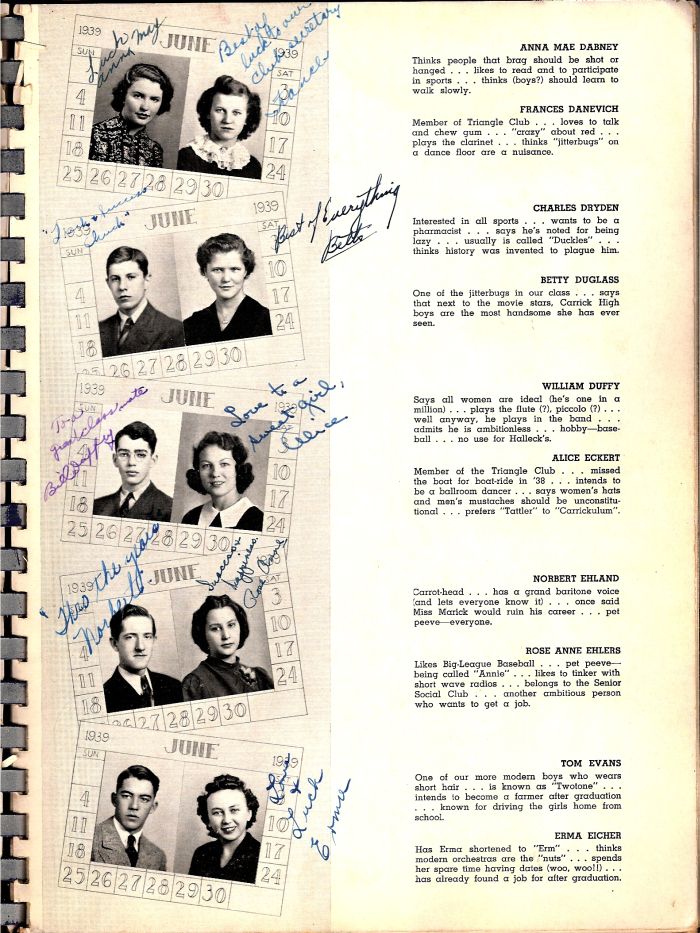 1939 JUNE 1939
SUN SAT
Luck
Anna Mae
Best of
luck to our
club secretary
Frances
4 10
11 17
18 24
25 26 27 28 29 30
ANNA MAE DABNEY
Thinks people that brag should be shot or
hanged . . . likes to read and to participate
in sports . . . thinks (boys?) should learn to
walk slowly.
FRANCES DANEVICH
Member of Triangle Club . . . loves to talk
and chew gum . . . "crazy" about red . . .
plays the clarinet . . . thinks "jitterbugs" on
a dance floor are a nuisance.
1939 JUNE 1939
SUN SAT
"Luck & Success
Chuck"
Best of Everything
Betts
4 10
11 17
18 24
25 26 27 28 29 30
CHARLES DRYDEN
Interested in all sports . . . wants to be a
pharmacist . . . says he's noted for being
lazy . . . usually is called "Duckles" . . .
thinks history was invented to plague him.
BETTY DUGLASS
One of the jitterbugs in our class . . . says
that next to the movie stars, Carrick High
boys are the most handsome she has ever
seen.
1939 JUNE 1939
SUN
To a
grand classmate
Bill Duffy
Love to a
sweet girl,
Alice
4 10
11 17
18 24
25 26 27 28 29 30
WILLIAM DUFFY
Says all women are ideal (he's one in a
million) . . . plays the flute (?), piccolo (?) . . .
well anyway, he plays in the band . . .
admits he is ambitionless . . . hobby—base-
ball . . . no use for Halleck's.
ALICE ECKERT
Member of the Triangle Club . . . missed
the boat for boat-ride in '38 . . . intends to
be a ballroom dancer . . . says women's hats
and men's mustaches should be unconstitu-
tional . . . prefers "Tattler" to "Carrickulum".
1939 JUNE
SAT
"Thru the years
Norbert"
Success &
happiness.
Rose Anne
3
4 10
11 17
18 24
25 26 27 28 29 30
NORBERT EHLAND
Carrot-head . . . has a grand baritone voice
(and lets everyone know it) . . . once said
Miss Marick would ruin his career . . . pet
peeve—everyone.
ROSE ANNE EHLERS
Likes Big-League Baseball . . . pet peeve—
being called "Annie" . . . likes to tinker with
short wave radios . . . belongs to the Senior
Social Club . . . another ambitious person
who wants to get a job.
1939 JUNE 1939
SUN
Love
&
Luck
Erma
4
11 10
18 17
24
25 26 27 28 29 30
TOM EVANS
One of our more modern boys who wears
short hair . . . is known as "Twotone" . . .
intends to become a farmer after graduation
. . . known for driving the girls home from
school.
ERMA EICHER
Has Erma shortened to "Erm" . . . thinks
modern orchestras are the "nuts" . . . spends
her spare time having dates (woo, woo!!) . . .
has already found a job for after graduation.